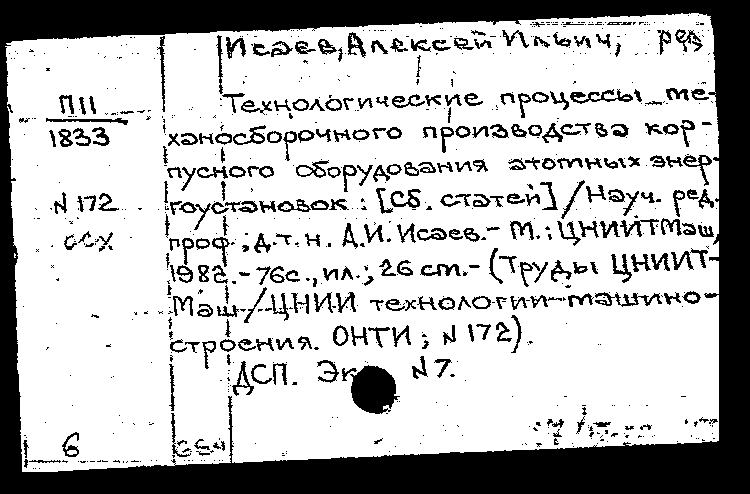 Исаев, Алексей Ильич, ред
П11
1833
Технологические процессы ме-
ханосборочного производства кор-
пусного оборудования атомных энер-
N 172
гоустановок : [Сб. статей] / Науч. ред.
осх
проф., д.т.н. А.И. Исаев. - М. : ЦНИИТМаш,
1982. - 76с., ил.; 26 cm. - (Труды ЦНИИТ-
Маш / ЦНИИ технологии машино-
строения. ОНТИ ; N 172).
ДСП. Эк N 7.
6